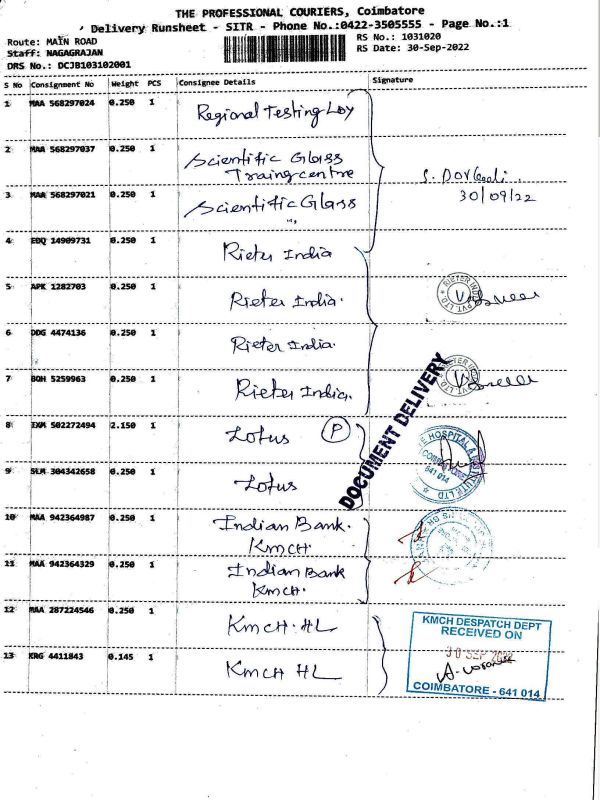 THE PROFESSIONAL COURIERS, Coimbatore
Delivery Runsheet - SITR - Phone No.:0422-3505555 - Page No.:1
Route: MAIN ROAD
RS No.: 1031020
Staff: NAGAGRAJAN
RS Date: 30-Sep-2022
DRS No.: DCJB103102001
S No Consignment No Weight PCS Consignee Details Signature
1 MAA 568297024 0.250 1 Regional Testing Lby
2 MAA 568297037 0.250 1 Scientific Glass
Traingcentre
3 MAA 568297021 0.250 1 Scientific Glass
30/09/22
4 EDQ 14909731 0.250 1 Rieter India
5 APK 1282703 0.250 1 Rieter India.
RIETER INDIA PVT. LTD.
6 DDG 4474136 0.250 1 Rieter India.
7 BOH 5259963 0.250 1 Rieter India.
RIETER INDIA PVT. LTD.
DOCUMENT DELIVERY
8 EXM 502272494 2.150 1 Lotus P
9 SLM 304342658 0.250 1 Lotus
HOSPITAL
641 014
10 MAA 942364987 0.250 1 Indian Bank.
KMCH
11 MAA 942364329 0.250 1 Indian Bank
KMCH.
12 MAA 287224546 0.250 1 KMCH. HL
13 KRG 4411843 0.145 1 KMCH HL
KMCH DESPATCH DEPT
RECEIVED ON
30 SEP 2022
COIMBATORE - 641 014